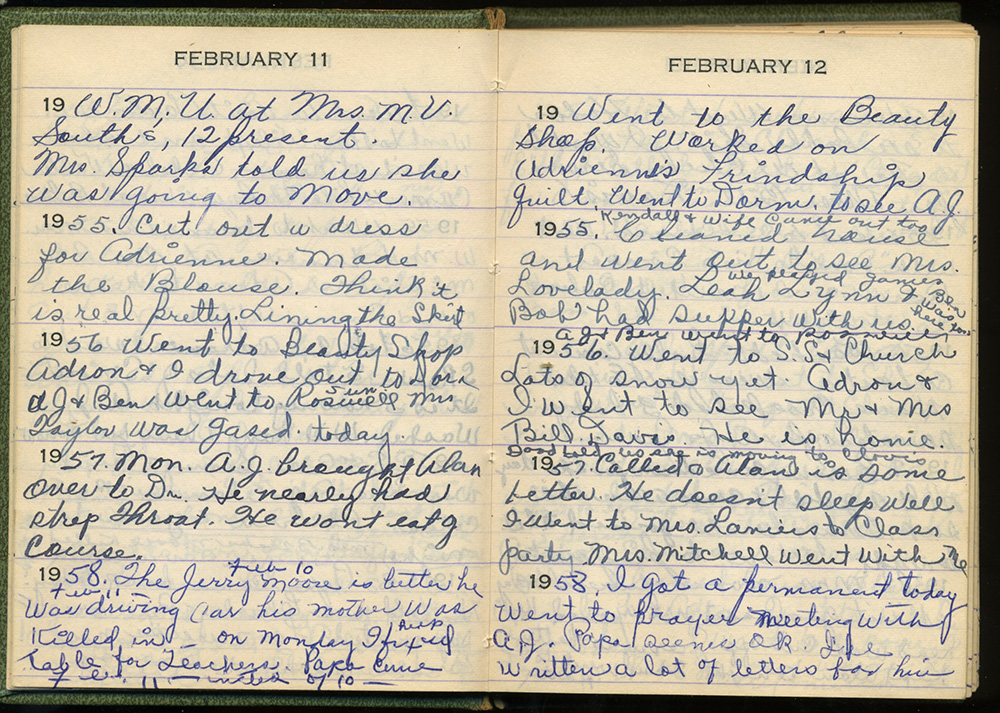 FEBRUARY 11
19 W.M.U. at Mrs. M.V.
South's, 12 present.
Mrs. Sparks told us she
was going to move.
1955. Cut out a dress
for Adrienne. Made
the Blouse. Think it
is real pretty. Lining the Skirt
1956 Went to Beauty Shop
Adron & I drove out to Dora
A.J & Ben went to Roswell Mrs
Taylor was gased. today.
1957. Mon. A.J. brought Alan
over to Dr. He nearly had
strep Throat. He wont eat g
course.
Feb 10
1958. The Jerry Moore is better he
Feb 11
was driving car his mother was
killed in on Monday I fixed
table for Teachers. Papa came
11 — of 10 —
FEBRUARY 12
19 Went to the Beauty
Shop. Worked on
Adrienne's Frindship
quilt. Went to Dorm. to see A.J.
Kendall & wife came out too
1955. Cleaned house
and went out to see Mrs.
we played games
Lovelady. Leah Lynn & Ben
was here too
Bob had supper with us.
A.J & Ben went to
1956. Went to S.S & Church
Lots of snow yet. Adron &
I went to see Mr & Mrs
Bill Davis. He is home.
told us she is moving to Clovis
1957. Called & Alan is some
better. He doesn't sleep well
I went to Mrs. Laniers to Class
party. Mrs. Mitchell went with me
1958. I got a permanent today
went to prayer meeting with
A.J. Papa seems OK. I've
written a lot of letters for him